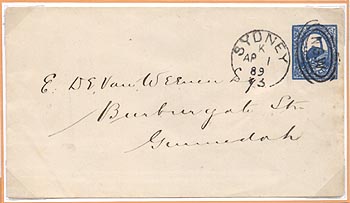 SYDNEY
K
AP 1
89
E. De Van Weenen Esq
Burburgate Stn
Gunnedah